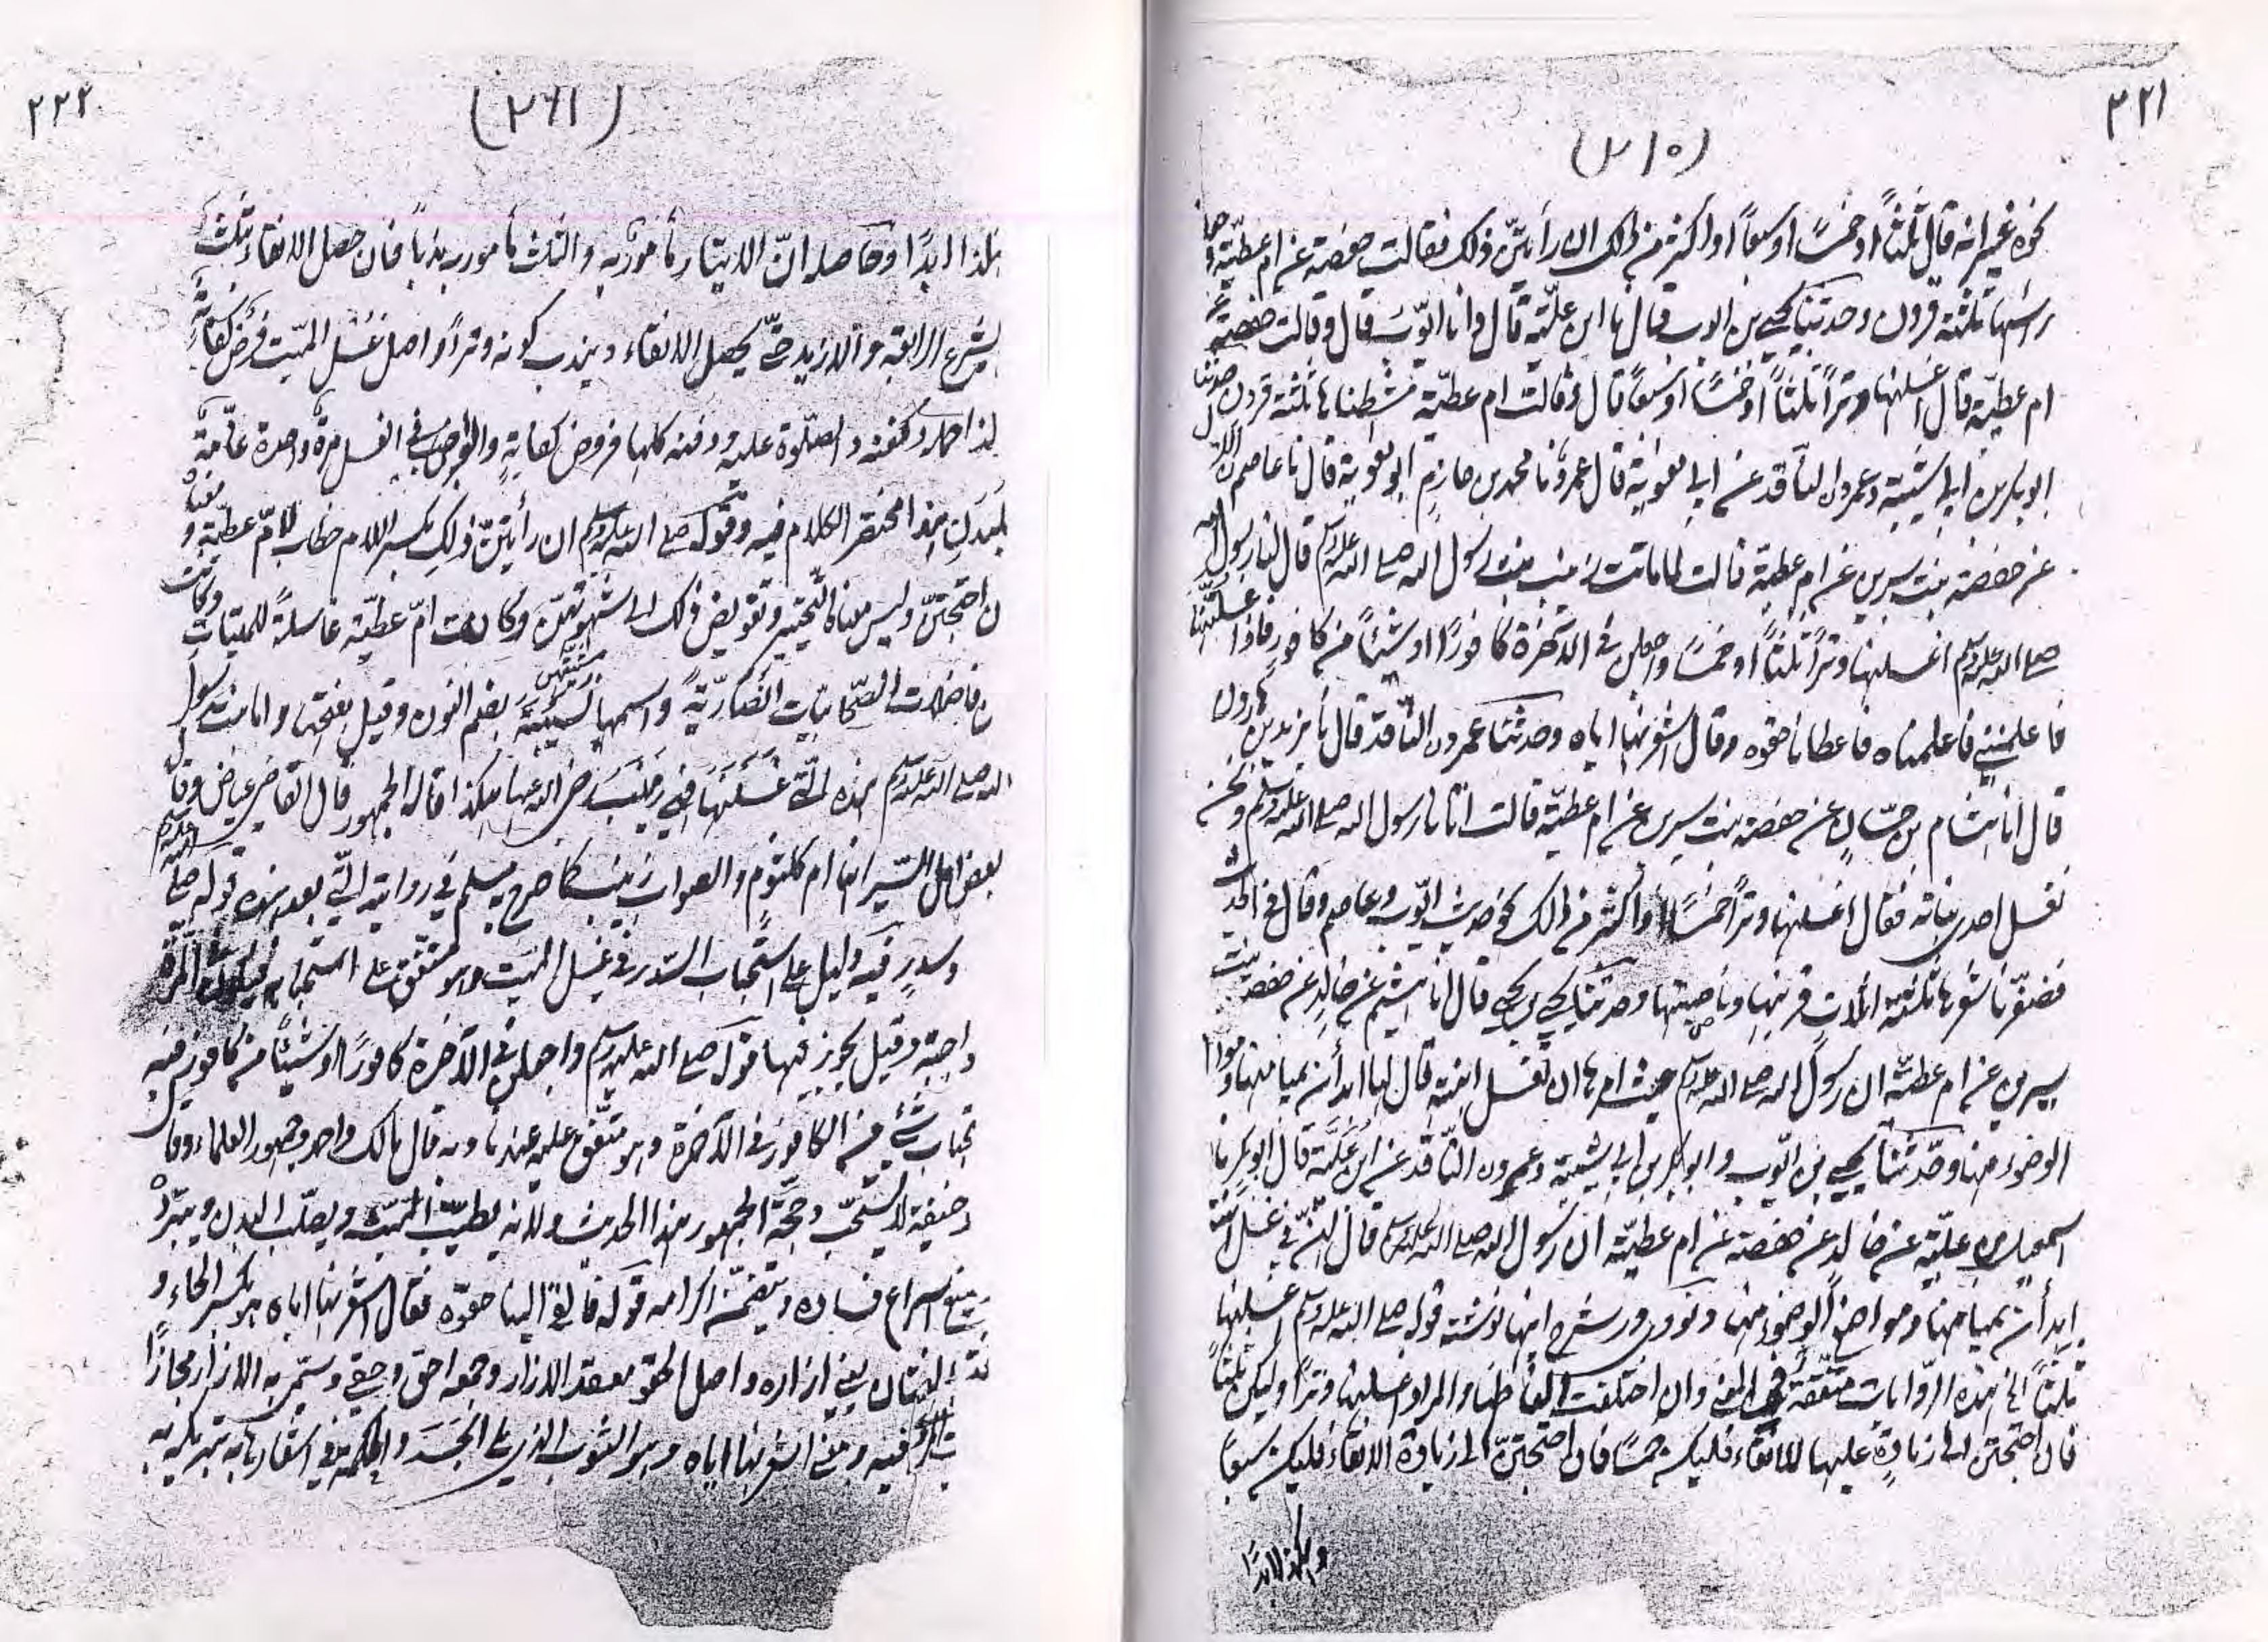 ٣٢١
(٢١٥)
نحوه غير انه قال ثلثاً او خمسًا او سبعًا او اكثر من ذلك ان رأيتنّ ذلك فقالت حفصة عن ام عطيّة وجعلنا
راسها ثلثة قرون وحدثنا يحيى بن ايوب قال نا ابن عليّة قال وانا ايّوب قال وقالت حفصة عن
ام عطيّة قال اغسلنها وترًا ثلثاً او خمسًا او سبعًا قال وقالت ام عطيّة مشطناها ثلثة قرون حدثنا
ابو بكر بن ابي شيبة وعمرو الناقد عن ابي معوية قال عمرو نا محمد بن حازم ابو معوية قال نا عاصم الاحول
عن حفصة بنت سيرين عن ام عطية قالت لما ماتت زينب بنت رسول الله صلى الله عليه وسلم قال لنا رسول الله
صلى الله عليه وسلم اغسلنها وترًا ثلثاً او خمسًا واجعلن في الآخرة كافورًا او شيئاً من كافور فاذا غسلتنها
فاعلمنني فاعلمناه فاعطانا حقوه وقال اشعرنها اياه وحدثنا عمرو الناقد قال نا يزيد بن هارون
قال انا هشام بن حسّان عن حفصة بنت سيرين عن ام عطيّة قالت اتانا رسول الله صلى الله عليه وسلم ونحن
نغسل احدى بناته فقال اغسلنها وترًا خمسًا او اكثر من ذلك نحو حديث ايّوب وعاصم وقال في الحديث
فضفّرنا شعرها ثلثة اثلاث قرنيها وناصيتها وحدثنا يحيى بن يحيى قال انا هشيم عن خالد عن حفصة بنت
سيرين عن ام عطيّة ان رسول الله صلى الله عليه وسلم حيث امرها ان تغسل ابنته قال لها ابدأن بميامنها ومواضع
الوضوء منها وحدّثنا يحيى بن ايّوب وابو بكر بن ابي شيبة وعمرو الناقد عن ابن عليّة قال ابو بكر نا
اسمعيل بن عليّة عن خالد عن حفصة عن ام عطيّة ان رسول الله صلى الله عليه وسلم قال لهنّ في غسل ابنته
ابدأن بميامنها ومواضع الوضوء منها ونووي در شرح اينها نوشته قوله صلى الله عليه وسلم اغسلنها
ثلثاً الخ هذه الروايات متفقة في المعنى وان اختلفت الفاظها والمراد اغسلنها وترًا وليكن ثلثاً
فان احتجتن الى زيادة عليها للانقاء فليكن خمسًا فان احتجتنّ الى زيادة الانقاء فليكن سبعًا
وهكذا ابدًا
٢٢٢
(٢٦١)
هكذا ابدًا وحاصله انّ الايتار مأمور به والثلث مأمور به ندبًا فان حصل الانقاء بثلث
يشرع الرابعة والا زيد حتى يحصل الانقاء ويندب كونه وترًا واصل غسل الميّت فرض كفاية
كذا حمله وكفنه والصلوة عليه ودفنه كلها فروض كفاية والواجب في الغسل مرة واحدة عامّة
للبدن هذا مختصر الكلام فيه وقوله صلى الله عليه وسلم ان رأيتنّ ذلك بكسر اللام خطاب لامّ عطيّة ومعناه
ان احتجتنّ وليس معناه التخيير وتفويض ذلك الى شهوتهنّ وكانت امّ عطيّة غاسلةً للميتات وكانت
من فاضلات الصّحابيات انصاريّةً واسمها نسيبة بضم النون وقيل بفتحها واما بنت رسول
الله صلى الله عليه وسلم هذه التي غسلنها فهي زينب رضي الله عنها هكذا قاله الجمهور قال القاضي عياض وقال
بعض اهل السّير انها ام كلثوم والصواب زينب كما صرح به مسلم في روايته التي بعد هذه قوله صلى الله عليه وسلم
وسدر فيه دليل على استحباب السّدر في غسل الميّت وهو متّفق على استحبابه
واجبة وقيل يجوز فيها قوله صلى الله عليه وسلم واجعلن في الآخرة كافورًا او شيئاً من كافور فيه
استحباب شيء من الكافور في الآخرة وهو متّفق عليه عندنا وبه قال مالك واحمد وجمهور العلماء وقال
ابو حنيفة لا يستحبّ وحجّة الجمهور هذا الحديث ولانه يطيّب الميّت ويصلّب البدن ويبرّده
ويمنع اسراع فساده ويتضمّن اكرامه قوله فالقى الينا حقوه فقال اشعرنها اياه هو بكسر الحاء و
فتحها لغتان يعني ازاره واصل الحقو معقد الازار وجمعه احق وحقي وسمّي به الازار مجازًا
لانه يشد فيه ومعنى اشعرنها اياه وهو الثوب الذي يلي الجسد والحكمة في اشعارها به تبريكه به